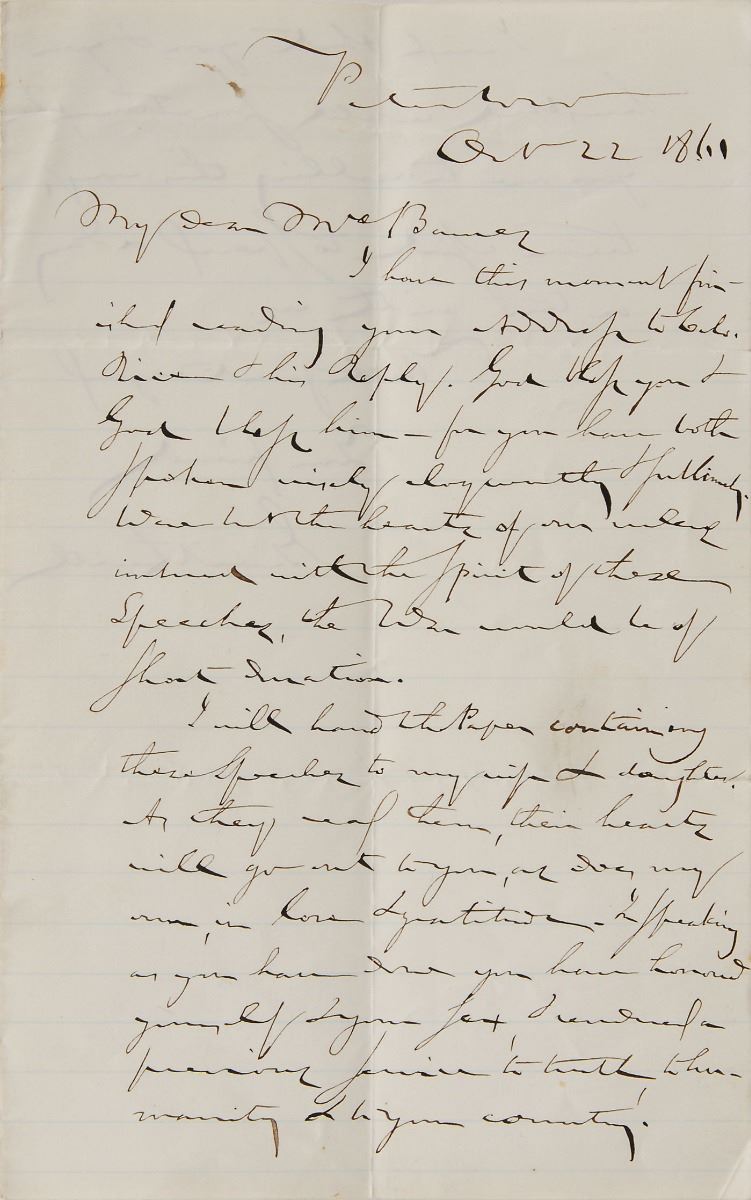 Peterboro
Oct 22 1861
My dear Mrs Barnes
I have this moment fin-
ished reading your Address to Col.
& his Reply. God bless you &
God bless him — for you have both
spoken wisely eloquently & sublimely.
Were but the hearts of our rulers
imbued with the Spirit of these
Speeches, the War would be of
short duration.
I will hand the Paper containing
these Speeches to my wife & daughter.
As they read them, their hearts
will go out to you, as does my
own, in love & gratitude. In speaking
as you have done you have honored
yourself & your sex, & rendered a
precious service to truth, to hu-
manity & to your country.